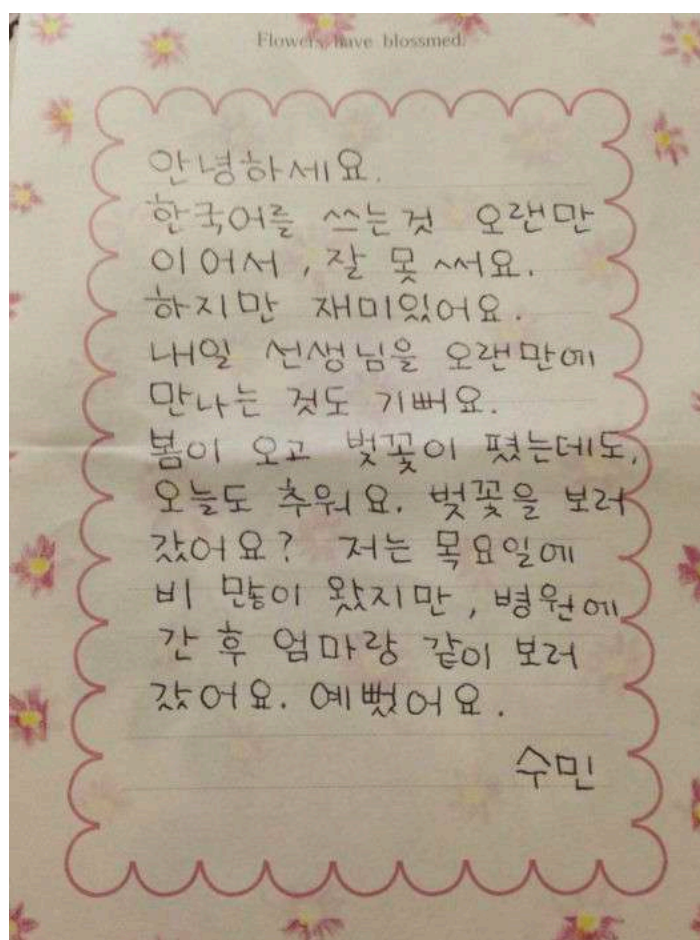 Flowers have blossmed.
안녕하세요.
한국어를 쓰는것 오랜만
이어서, 잘 못 써요.
하지만 재미있어요.
내일 선생님을 오랜만에
만나는 것도 기뻐요.
봄이 오고 벚꽃이 폈는데도,
오늘도 추워요. 벚꽃을 보러
갔어요? 저는 목요일에
비 많이 왔지만, 병원에
간 후 엄마랑 같이 보러
갔어요. 예뻤어요.
수민